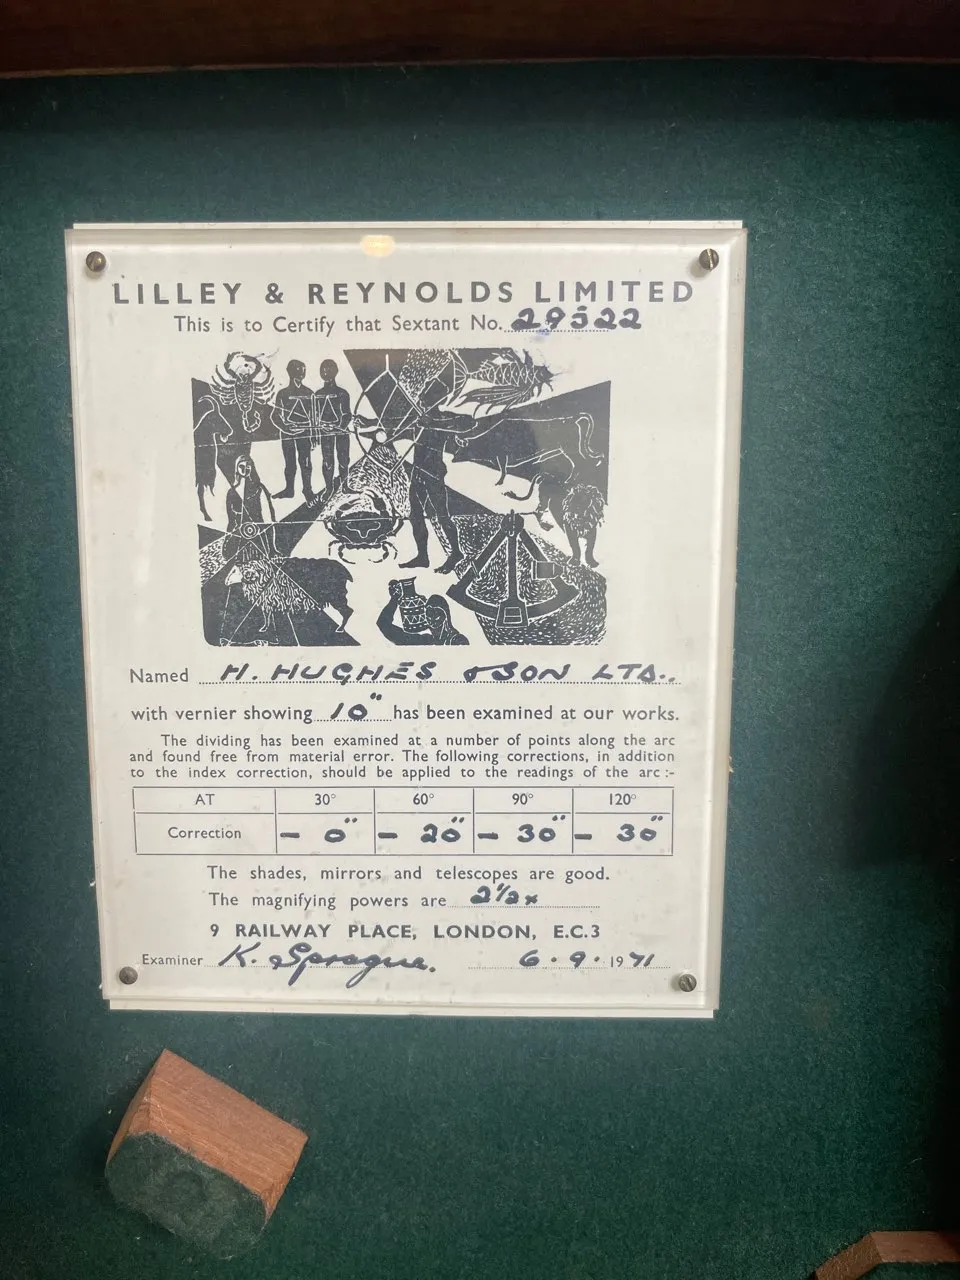 LILLEY & REYNOLDS LIMITED
This is to Certify that Sextant No. 29522
Named H. HUGHES & SON LTD.
with vernier showing 10" has been examined at our works.
The dividing has been examined at a number of points along the arc
and found free from material error. The following corrections, in addition
to the index correction, should be applied to the readings of the arc :-
AT 30° 60° 90° 120°
Correction - 0" - 20" - 30" - 30"
The shades, mirrors and telescopes are good.
The magnifying powers are 2½x
9 RAILWAY PLACE, LONDON, E.C.3
Examiner K. Sprague. 6.9.1971